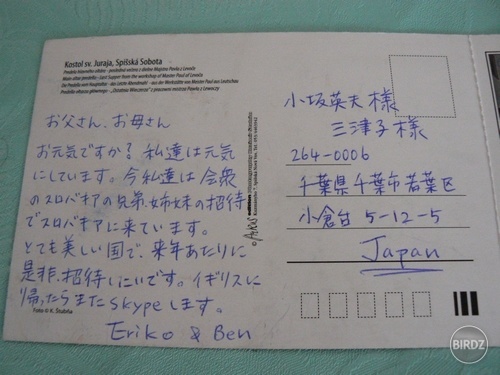 Kostol sv. Juraja, Spišská Sobota
お父さん、お母さん
お元気ですか？私達は元気
にしています。今私達は会衆
のスロバキアの兄弟姉妹の招待
でスロバキアに来ています。
とても美しい国で、来年あたりに
是非、招待したいです。イギリスに
帰ったらまたskypeします。
Eriko & Ben
Foto © K. Štubňa
小坂英夫様
三津子様
264-0006
千葉県千葉市若葉区
小倉台 5-12-5
Japan
BIRDZ